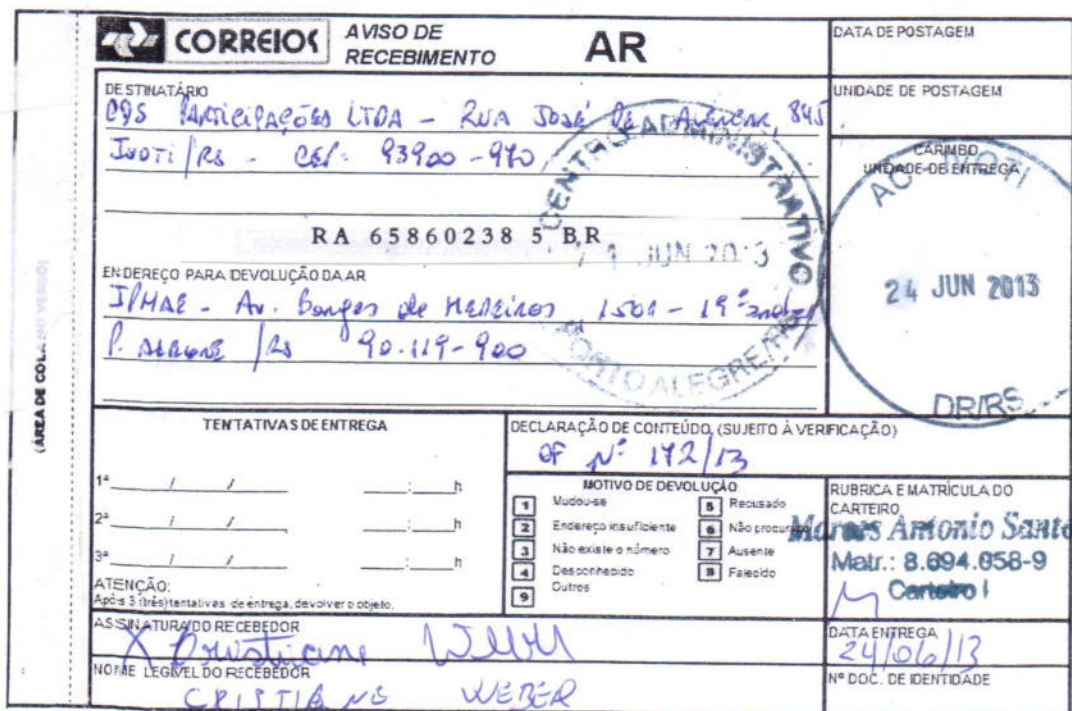 CORREIOS
AVISO DE
RECEBIMENTO
AR
DATA DE POSTAGEM
DESTINATÁRIO
UNIDADE DE POSTAGEM
PARTICIPAÇÕES LTDA - RUA JOSÉ DE ALENCAR, 845
IVOTI/RS - CEP: 93900-970
CARIMBO
UNIDADE DE ENTREGA
AC IVOTI
24 JUN 2013
DR/RS
CENTRO ADMINISTRATIVO
JUN 2013
PORTO ALEGRE/RS
RA 65860238 5 BR
ENDEREÇO PARA DEVOLUÇÃO DA AR
Av. Borges de Medeiros 1501 - 19º andar
P. ALEGRE /RS 90.119-900
(ÁREA DE COLA NO VERSO)
TENTATIVAS DE ENTREGA
1ª ____/____/____ ____:____h
2ª ____/____/____ ____:____h
3ª ____/____/____ ____:____h
ATENÇÃO:
Após 3 (três) tentativas de entrega, devolver o objeto.
DECLARAÇÃO DE CONTEÚDO (SUJEITO À VERIFICAÇÃO)
OF Nº 172/13
MOTIVO DE DEVOLUÇÃO
1 Mudou-se
2 Endereço insuficiente
3 Não existe o número
4 Desconhecido
9 Outros
5 Recusado
6 Não procurado
7 Ausente
8 Falecido
RUBRICA E MATRÍCULA DO
CARTEIRO
Marcos Antonio Santo
Matr.: 8.694.058-9
Carteiro I
ASSINATURA DO RECEBEDOR
X Cristiane Weber
DATA ENTREGA
24/06/13
NOME LEGÍVEL DO RECEBEDOR
CRISTIANE WEBER
Nº DOC. DE IDENTIDADE